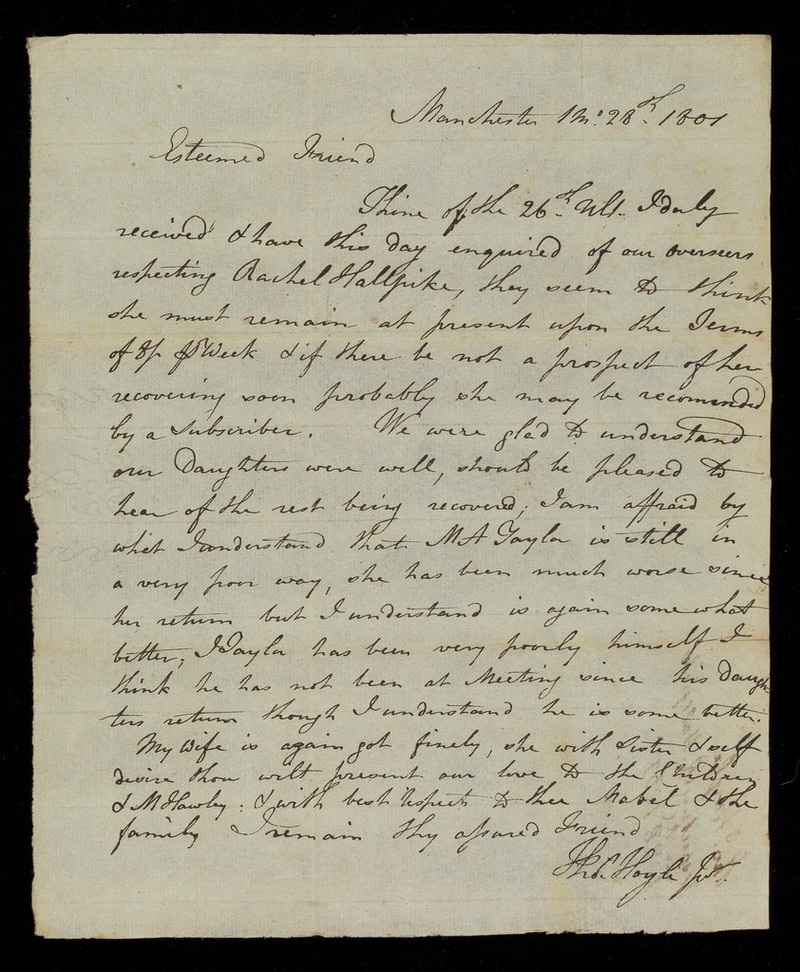 Manchester 1 Mo. 28th. 1801
Esteemed Friend
Thine of the 26th. Ult. I duly
received & have this day enquired of our overseers
respecting Rachel Hallpike, they seem to think
she must remain at present upon the Terms
of 8/ Pr Week & if there be not a prospect of her
recovering soon probably she may be recomended
by a Subscriber. We were glad to understand
our Daughters were well, should be pleased to
hear of the rest being recovered; I am affraid by
what I understand that M A Taylor is still in
a very poor way, she has been much worse since
her return but I understand is again some what
better; J Taylor has been very poorly himself I
think he has not been at Meeting since his Daugh-
ters return though I understand he is some better.
My Wife is again got finely, she with Sister & self
desire thou wilt present our love to the Children
& M Hawley: & with best respects to thee Mabel & the
family I remain thy assured Friend
Thos. Hoyle Jr.